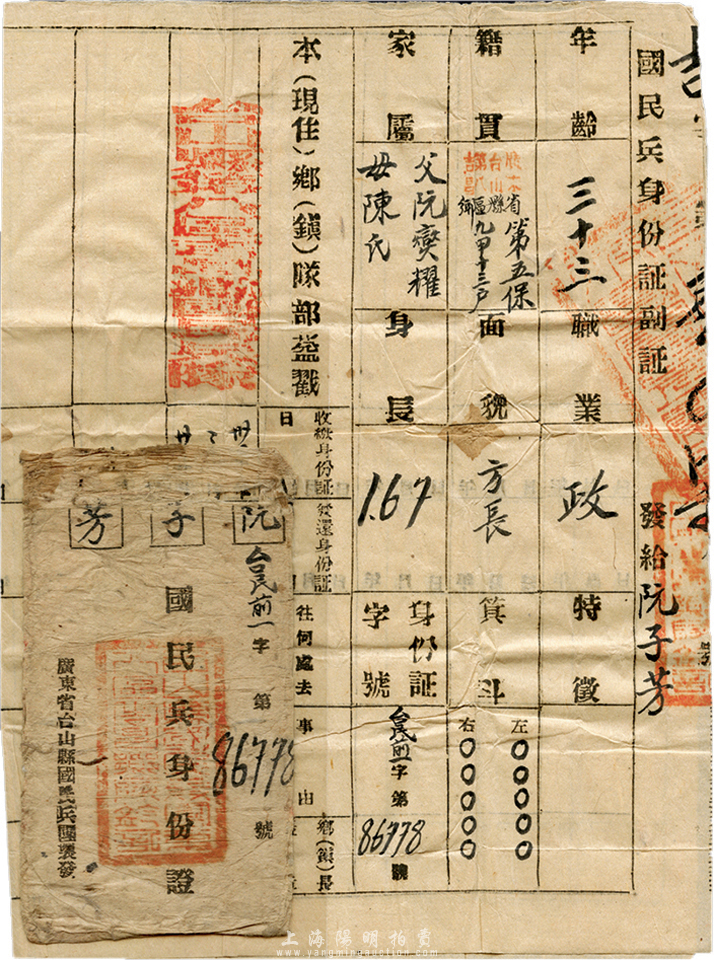 國民兵身份証副証
發給阮子芳
號
年齡 三十三 職業 政 特徵
籍貫 省 台山縣 區 鄉 第五保 九甲十三戶 面貌 方長 箕斗 左 〇〇〇〇〇 右 〇〇〇〇〇
家屬 父阮燮耀 母陳氏 身長 1.67 身份証字號 台民前一字第86778號
本(現住)鄉(鎮)隊部蓋戳
收繳身份証 日
發還身份証
往何處去
事由
鄉(鎮)長
阮子芳
台民前一字第86778號
國民兵身份證
廣東省台山縣國民兵團製發
上海陽明拍賣
www.yangmingauction.com